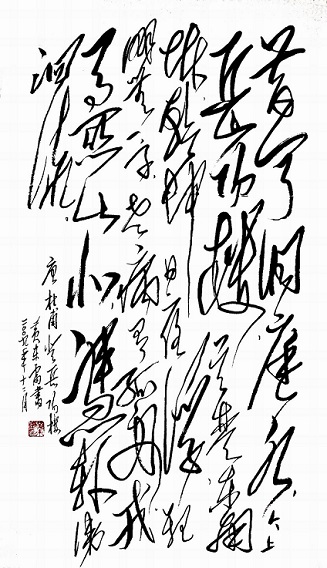 昔闻洞庭水今上
岳阳楼吴楚东南
坼乾坤日夜浮亲
朋无一字老病有孤舟戎
马关山北凭轩涕
泗流
唐杜甫登岳阳楼
黄东雷书
年十一月